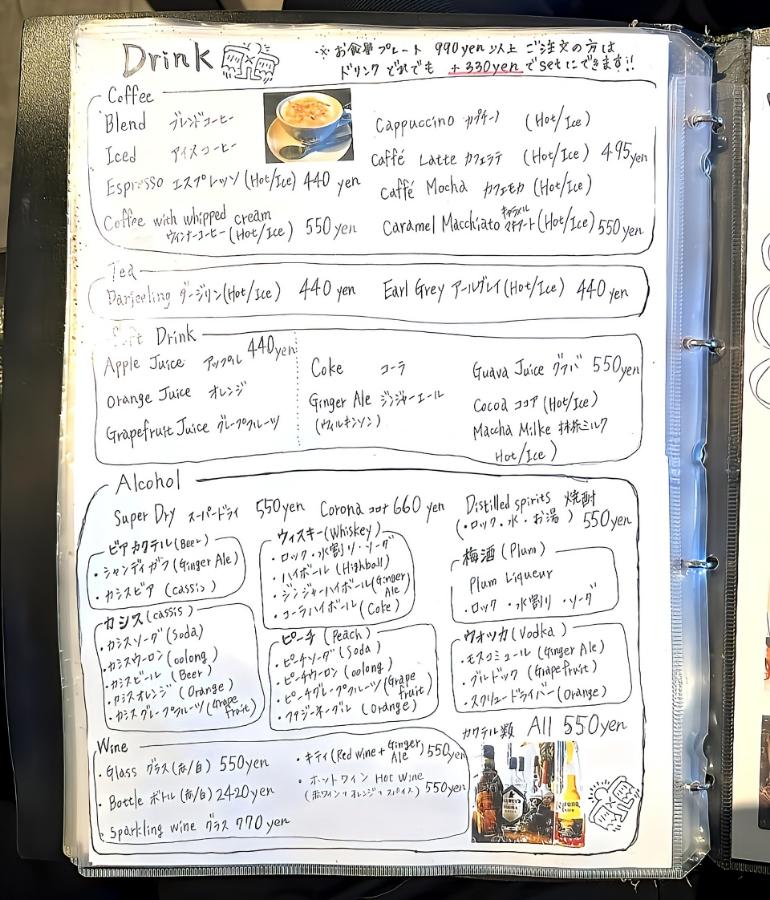 Drink
※お食事プレート 990yen以上 ご注文の方は
ドリンク どれでも +330yenでsetにできます!!
Coffee
Blend ブレンドコーヒー
Iced アイスコーヒー
Espresso エスプレッソ (Hot/Ice) 440 yen
Coffee with whipped cream
ウィンナーコーヒー (Hot/Ice) 550 yen
Cappuccino カプチーノ (Hot/Ice)
Caffé Latte カフェラテ (Hot/Ice) 495yen
Caffé Mocha カフェモカ (Hot/Ice)
Caramel Macchiato キャラメルマキアート (Hot/Ice) 550yen
Tea
Darjeeling ダージリン (Hot/Ice) 440 yen
Earl Grey アールグレイ (Hot/Ice) 440 yen
Soft Drink
Apple Juice アップル 440yen
Orange Juice オレンジ
Grapefruit Juice グレープフルーツ
Coke コーラ
Ginger Ale ジンジャーエール
(ウィルキンソン)
Guava Juice グアバ 550yen
Cocoa ココア (Hot/Ice)
Maccha Milke 抹茶ミルク
Hot/Ice)
Alcohol
Super Dry スーパードライ 550yen
Corona コロナ 660 yen
Distilled spirits 焼酎
(・ロック・水・お湯) 550yen
ビアカクテル (Beer)
・シャンディガフ (Ginger Ale)
・カシスビア (cassis)
ウィスキー (Whiskey)
・ロック・水割り・ソーダ
・ハイボール (Highball)
・ジンジャーハイボール (Ginger Ale)
・コーラハイボール (Coke)
梅酒 (Plum)
Plum Liqueur
・ロック・水割り・ソーダ
カシス (cassis)
・カシスソーダ (Soda)
・カシスウーロン (oolong)
・カシスビール (Beer)
・カシスオレンジ (Orange)
・カシスグレープフルーツ (Grape fruit)
ピーチ (Peach)
・ピーチソーダ (Soda)
・ピーチウーロン (oolong)
・ピーチグレープフルーツ (Grape fruit)
・ファジーネーブル (Orange)
ウォッカ (Vodka)
・モスコミュール (Ginger Ale)
・ブルドック (Grapefruit)
・スクリュードライバー (Orange)
カクテル類 All 550yen
Wine
・Glass グラス (赤/白) 550yen
・Bottle ボトル (赤/白) 2420yen
・Sparkling wine グラス 770 yen
・キティ (Red wine + Ginger Ale) 550yen
・ホットワイン Hot Wine
(赤ワイン+オレンジ+スパイス) 550yen